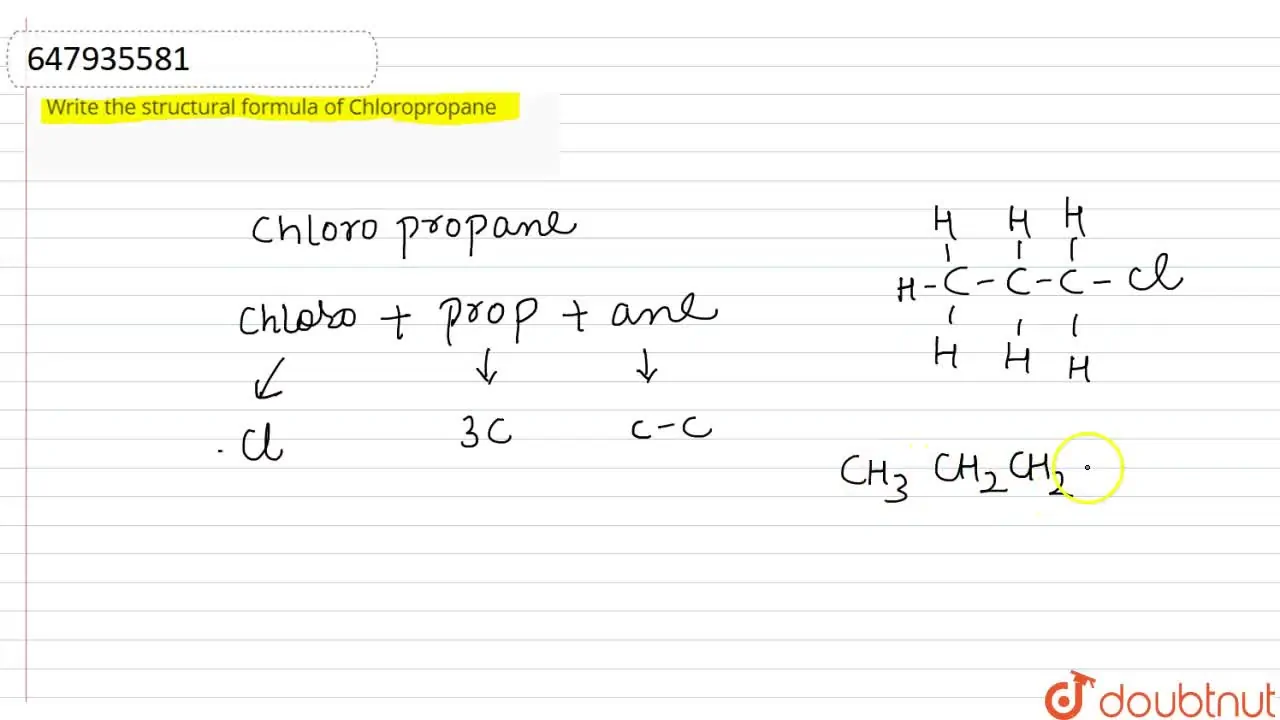 647935581
Write the structural formula of Chloropropane
Chloro propane
Chloro + prop + ane
Cl 3C C-C
H H H
H-C-C-C-Cl
H H H
CH3 CH2CH2
doubtnut